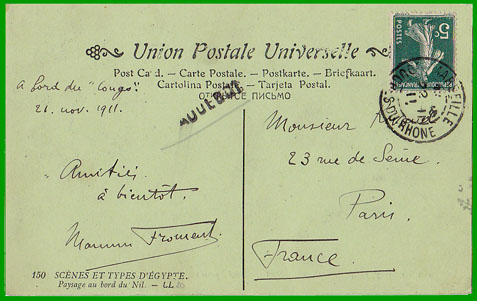 Union Postale Universelle
Post Card. — Carte Postale. — Postkarte. — Briefkaart.
Cartolina Postale — Tarjeta Postal.
ОТКРЫТОЕ ПИСЬМО
5c
POSTES
À bord du "Congo"
21. nov. 1911.
Monsieur
23 rue de Seine.
Paris.
France.
Amitiés
à bientôt.
Froment
150 SCÈNES ET TYPES D'ÉGYPTE.
Paysage au bord du Nil. — LL